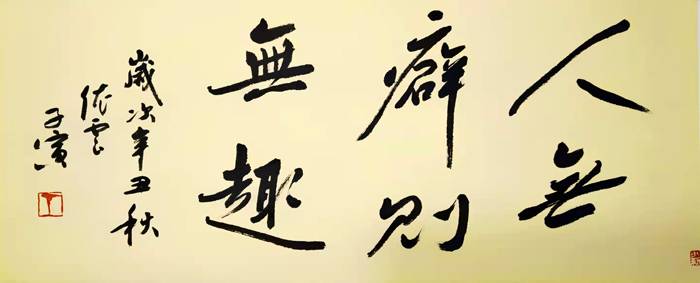 人無
癖則
無趣
歲次辛丑秋
依雲
子寅